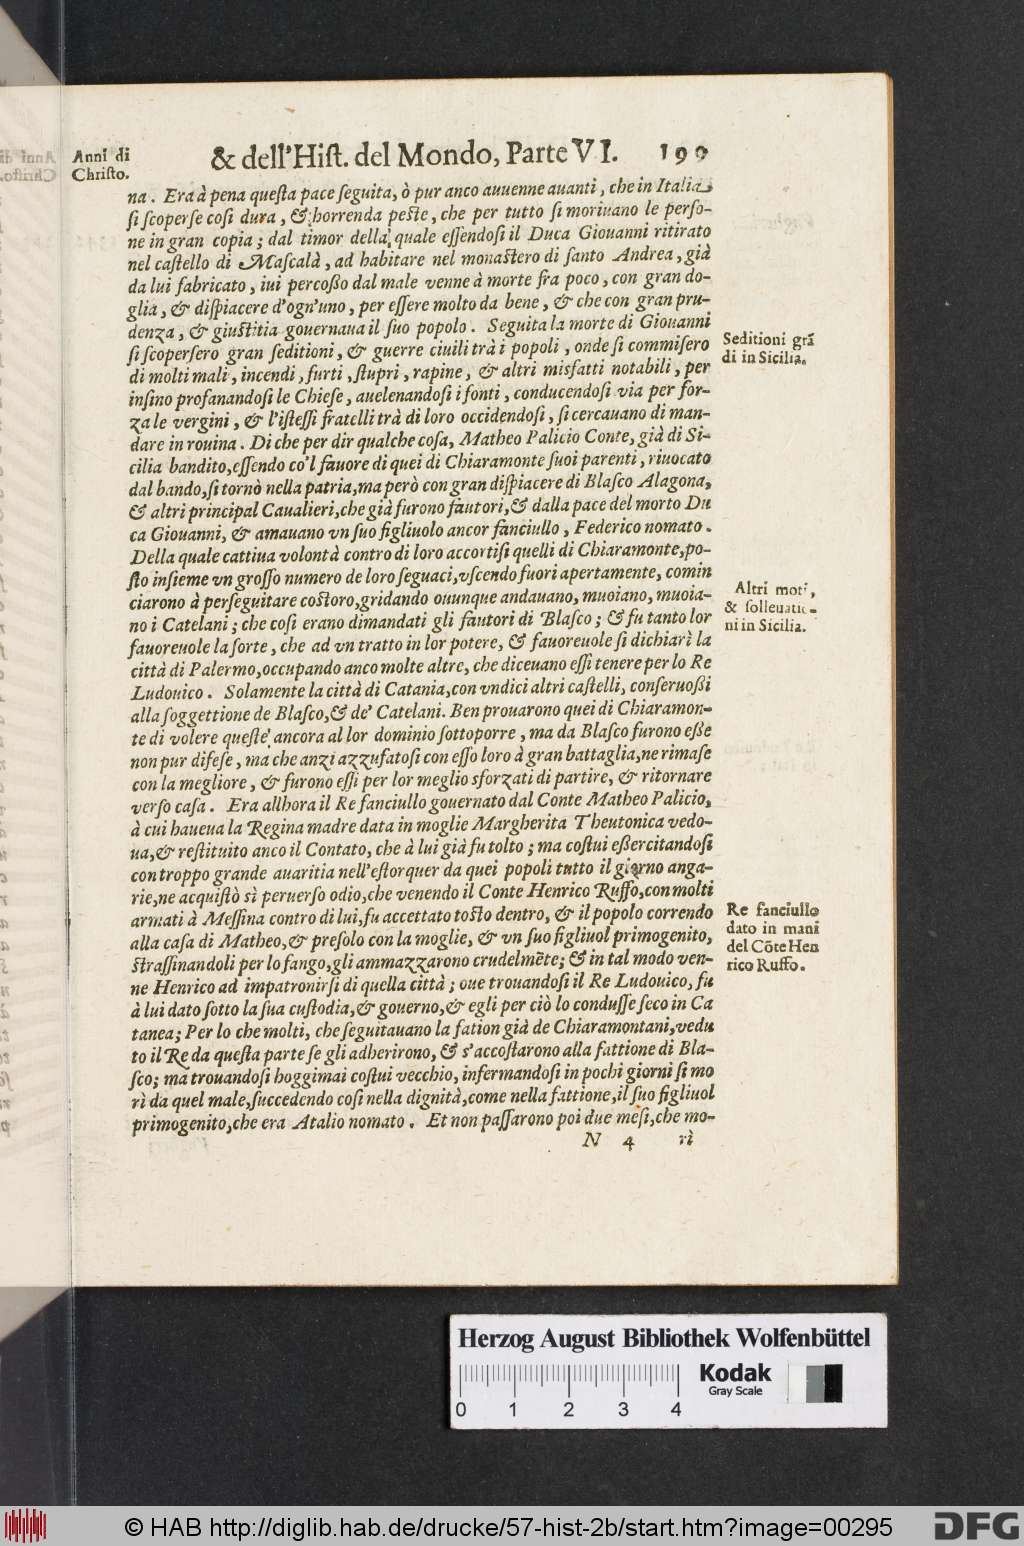 Anni di
Christo.
& dell'Hiſt. del Mondo, Parte VI. 190
na. Era à pena queſta pace ſeguita, ò pur anco auuenne auanti, che in Italia
ſi ſcoperſe coſi dura, & horrenda peſte, che per tutto ſi moriuano le perſo-
ne in gran copia; dal timor della quale eſſendoſi il Duca Giouanni ritirato
nel caſtello di Maſcalà, ad habitare nel monaſtero di ſanto Andrea, già
da lui fabricato, iui percoßo dal male venne à morte fra poco, con gran do-
glia, & diſpiacere d'ogn'uno, per eſſere molto da bene, & che con gran pru-
denza, & giuſtitia gouernaua il ſuo popolo. Seguita la morte di Giouanni
ſi ſcoperſero gran ſeditioni, & guerre ciuili trà i popoli, onde ſi commiſero
di molti mali, incendi, furti, ſtupri, rapine, & altri misfatti notabili, per
inſino profanandoſi le Chieſe, auelenandoſi i fonti, conducendoſi via per for-
za le vergini, & l'iſteſſi fratelli trà di loro occidendoſi, ſi cercauano di man-
dare in rouina. Di che per dir qualche coſa, Matheo Palicio Conte, già di Si-
cilia bandito,eſſendo co'l fauore di quei di Chiaramonte ſuoi parenti, riuocato
dal bando,ſi tornò nella patria,ma però con gran diſpiacere di Blaſco Alagona,
& altri principal Caualieri,che già furono fautori,& dalla pace del morto Du
ca Giouanni, & amauano vn ſuo figliuolo ancor fanciullo, Federico nomato.
Della quale cattiua volontà contro di loro accortiſi quelli di Chiaramonte,po-
ſto inſieme vn groſſo numero de loro ſeguaci,vſcendo fuori apertamente, comin
ciarono à perſeguitare coſtoro,gridando ouunque andauano, muoiano, muoia-
no i Catelani; che coſi erano dimandati gli fautori di Blaſco; & fu tanto lor
fauoreuole la ſorte, che ad vn tratto in lor potere, & fauoreuole ſi dichiarì la
città di Palermo,occupando anco molte altre, che diceuano eſſi tenere per lo Re
Ludouico. Solamente la città di Catania,con vndici altri caſtelli, conſeruoßi
alla ſoggettione de Blaſco,& de' Catelani. Ben prouarono quei di Chiaramon-
te di volere queſte ancora al lor dominio ſottoporre, ma da Blaſco furono eße
non pur difeſe, ma che anzi azzufatoſi con eſſo loro à gran battaglia,ne rimaſe
con la megliore, & furono eſſi per lor meglio sforzati di partire, & ritornare
verſo caſa. Era allhora il Re fanciullo gouernato dal Conte Matheo Palicio,
à cui haueua la Regina madre data in moglie Margherita Theutonica vedo-
ua,& reſtituito anco il Contato, che à lui già fu tolto; ma coſtui eßercitandoſi
con troppo grande auaritia nell'eſtorquer da quei popoli tutto il giorno anga-
rie,ne acquiſtò sì peruerſo odio,che venendo il Conte Henrico Ruſſo,con molti
armati à Meſſina contro di lui,fu accettato toſto dentro, & il popolo correndo
alla caſa di Matheo,& preſolo con la moglie, & vn ſuo figliuol primogenito,
ſtraſſinandoli per lo fango,gli ammazzarono crudelmēte; & in tal modo ven-
ne Henrico ad impatronirſi di quella città; oue trouandoſi il Re Ludouico, fu
à lui dato ſotto la ſua cuſtodia,& gouerno,& egli per ciò lo conduſſe ſeco in Ca
tanea; Per lo che molti, che ſeguitauano la fation già de Chiaramontani,vedu
to il Re da queſta parte ſe gli adherirono, & s'accoſtarono alla fattione di Bla-
ſco; ma trouandoſi hoggimai coſtui vecchio, infermandoſi in pochi giorni ſi mo
rì da quel male,ſuccedendo coſi nella dignità,come nella fattione,il ſuo figliuol
primogenito,che era Atalio nomato. Et non paſſarono poi due meſi,che mo-
N 4 rì
Seditioni grā
di in Sicilia.
Altri moti,
& ſolleuatio-
ni in Sicilia.
Re fanciullo
dato in mani
del Cōte Hen
rico Ruffo.
Herzog August Bibliothek Wolfenbüttel
Kodak
Gray Scale
0 1 2 3 4
© HAB http://diglib.hab.de/drucke/57-hist-2b/start.htm?image=00295
DFG